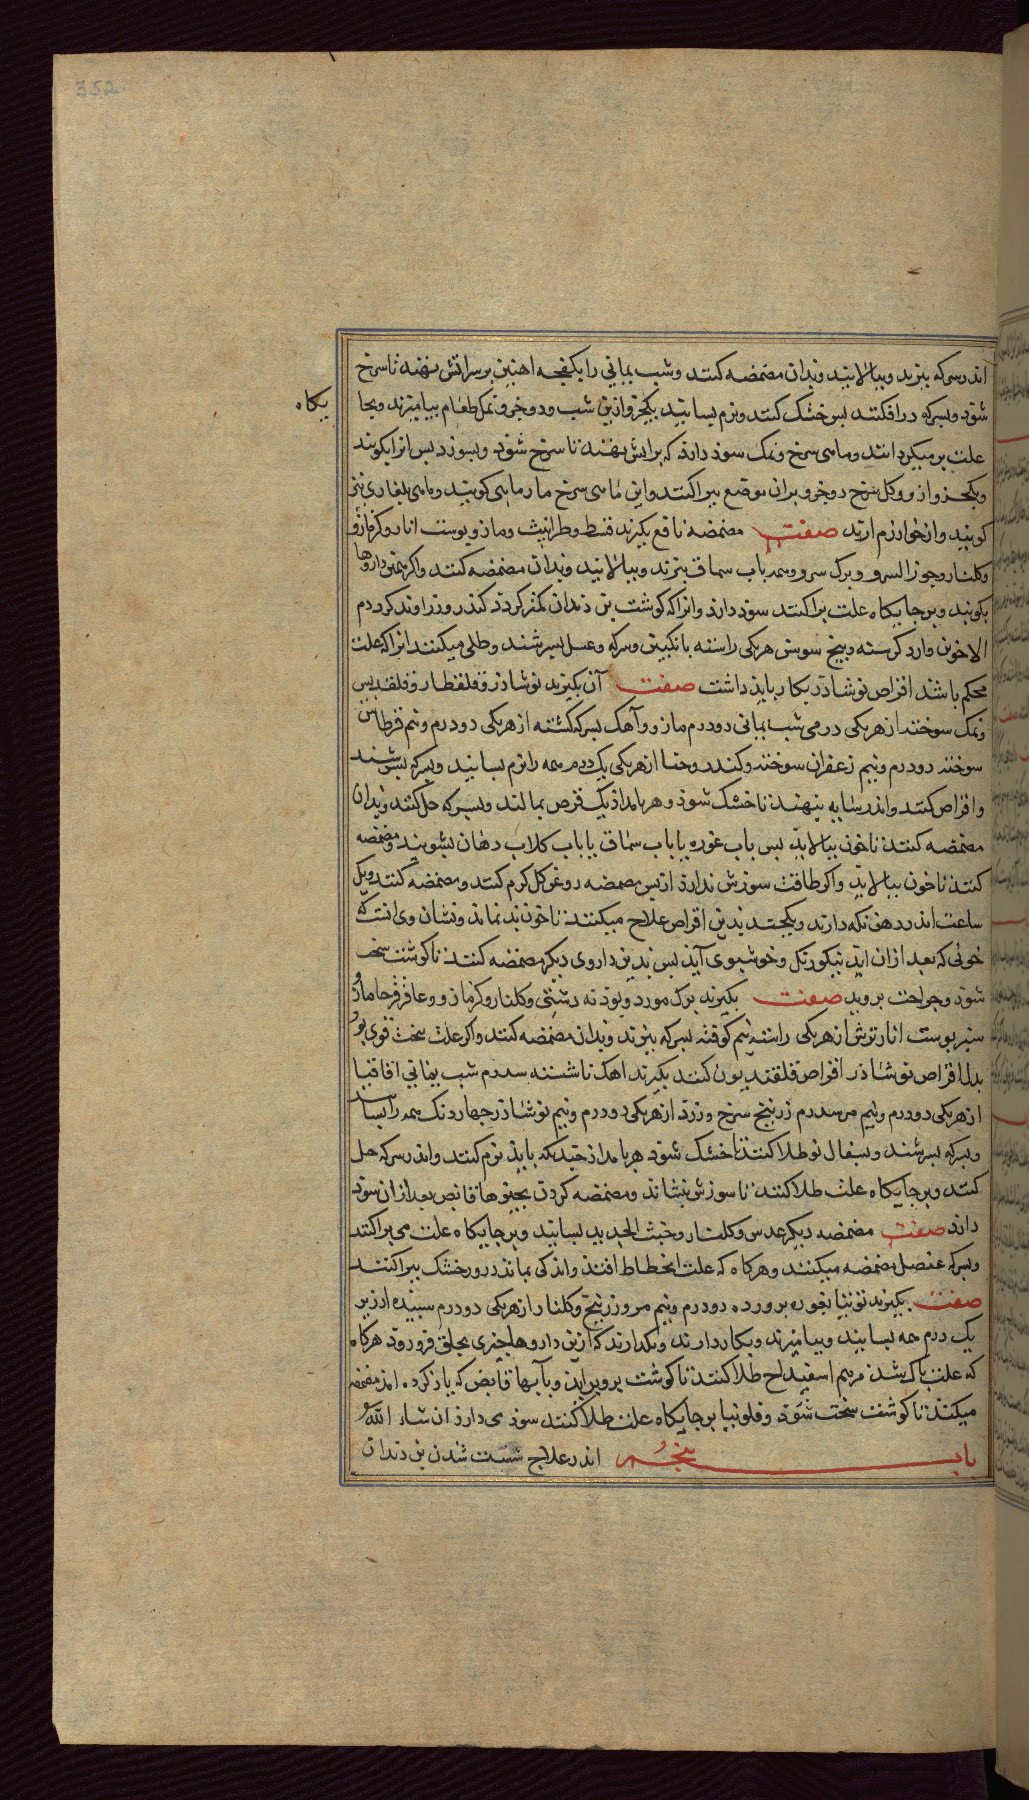 352
اندر سرکه بپزند و ببالایند و بدان مضمضه کنند و شب یمانی را بکفچه اهنین بر سر اتش بنهند تا سرخ
شود و بسرکه در افکنند بس خشک کنند و نرم بسایند یکجزو ازین شب و دو جزو نمک طعام بیامیزند و بجا
یکاه
علت بر میکردانند و ماهی سرخ و نمک سوذ دارذ که بر اتش بنهند تا سرخ شود و بسوزد بس انرا بکوبند
و یکجزو از و و کل سرخ دو جزو بران موضع ببراکنند و این ماهی سرخ مارماهی کویند و ماهی بلغاری نیز
کویند و از خوارزم ارند صفت مضمضه نافع بکیرند قسط و طراثیث و مازو و بوست انار و کزمازو
و کلنار و جوز السرو و برک سرو و سمه باب سماق بپزند و ببالایند و بدان مضمضه کنند و اکر همین داروها
بکوبند و بر جایکاه علت براکنند سود دارذ و انرا که کوشت بن دندان کمتر کردد کندر و زراوند کرد دم
الاخوین و ارد کرسنه و بیخ سوسن هر یکی راسته بانکبین و سرکه و عسل بسرشند و طلی میکنند انرا که علت
محکم باشد اقراص نوشاذر بکار بایذ داشت صفت آن بکیرند نوشاذر و قلقطار و قلقدیس
و نمک سوخته از هر یکی درمی شب یمانی دو درم مازو و آهک بسرکه کشته از هر یکی دو درم و نیم قرطاس
سوخته دو درم و نیم زعفران سوخته و کندر و حنا از هر یکی یک درم همه را نرم بسایند و بسرکه بسرشند
و اقراص کنند و اندر سایه بنهند تا خشک شوذ و هر بامداذ یک قرص بمالند و بسرکه حل کنند و بدان
مضمضه کنند تا خون ببالاید بس باب غوره یا باب سماق یا باب کلاب دهان بشویند و مضمضه
کنند تا خون ببالاید و اکر طاقت سوزش ندارذ از بس مضمضه روغن کل کرم کنند و مضمضه کنند و یک
ساعت اندر دهن نکه دارند و یکچند بدین اقراص علاج میکنند تا خون بد نماند و نشان وی انست که
خونی که بعد از ان اید نیکو رنک و خوشبوی آید بس بدین داروی دیکر مضمضه کنند تا کوشت سخت
شود و جراحت بروید صفت بکیرند برک مورد و بودنه دشتی و کلنار و کزمازو و عاقرقرحا مازو
سبز بوست انار ترش از هر یکی راسته نیم کوفته بسرکه بپزند و بدان مضمضه کنند و اکر علت سخت قوی بو
بدل اقراص نوشاذر اقراص قلقندیون کنند بکیرند اهک ناشسته سه درم شب یمانی اقاقیا
از هر یکی دو درم و نیم مر سه درم زرنیخ سرخ و زرد از هر یکی دو درم و نیم نوشاذر چهار دنک همه را بسایند
و بسرکه بسرشند و بسفال نو طلا کنند تا خشک شود هر بامداذ چندانکه بایذ نرم کنند و اندر سرکه حل
کنند و بر جایکاه علت طلا کنند تا سوزش بنشاند و مضمضه کردن بچیزها قابض بعد از ان سود
دارذ صفت مضمضه دیکر عدس و کلنار و خبث الحدید بسایند و بر جایکاه علت می براکنند
و بسرکه عنصل مضمضه میکنند و هر کاه که علت بانحطاط افتد و اندکی بماند زرور خشک ببراکنند
صفت بکیرند توتیا بغوره برورده دو درم و نیم مر و زرنیخ و کلنار از هر یکی دو درم سبیده ارزیر
یک درم همه بسایند و بیامیزند و بکار دارند و نکذارند که ازین داروها چیزی بحلق فرو رود هر کاه
که علت باک شد مرهم اسفیداج طلا کنند تا کوشت بروید و بآبها قابض که یاذ کرده امذ مضمضه
میکنند تا کوشت سخت شود و قلونیا بر جایکاه علت طلا کنند سوذ می دارد ان شاء الله
باب پنجم اندر علاج سست شدن بن دندان